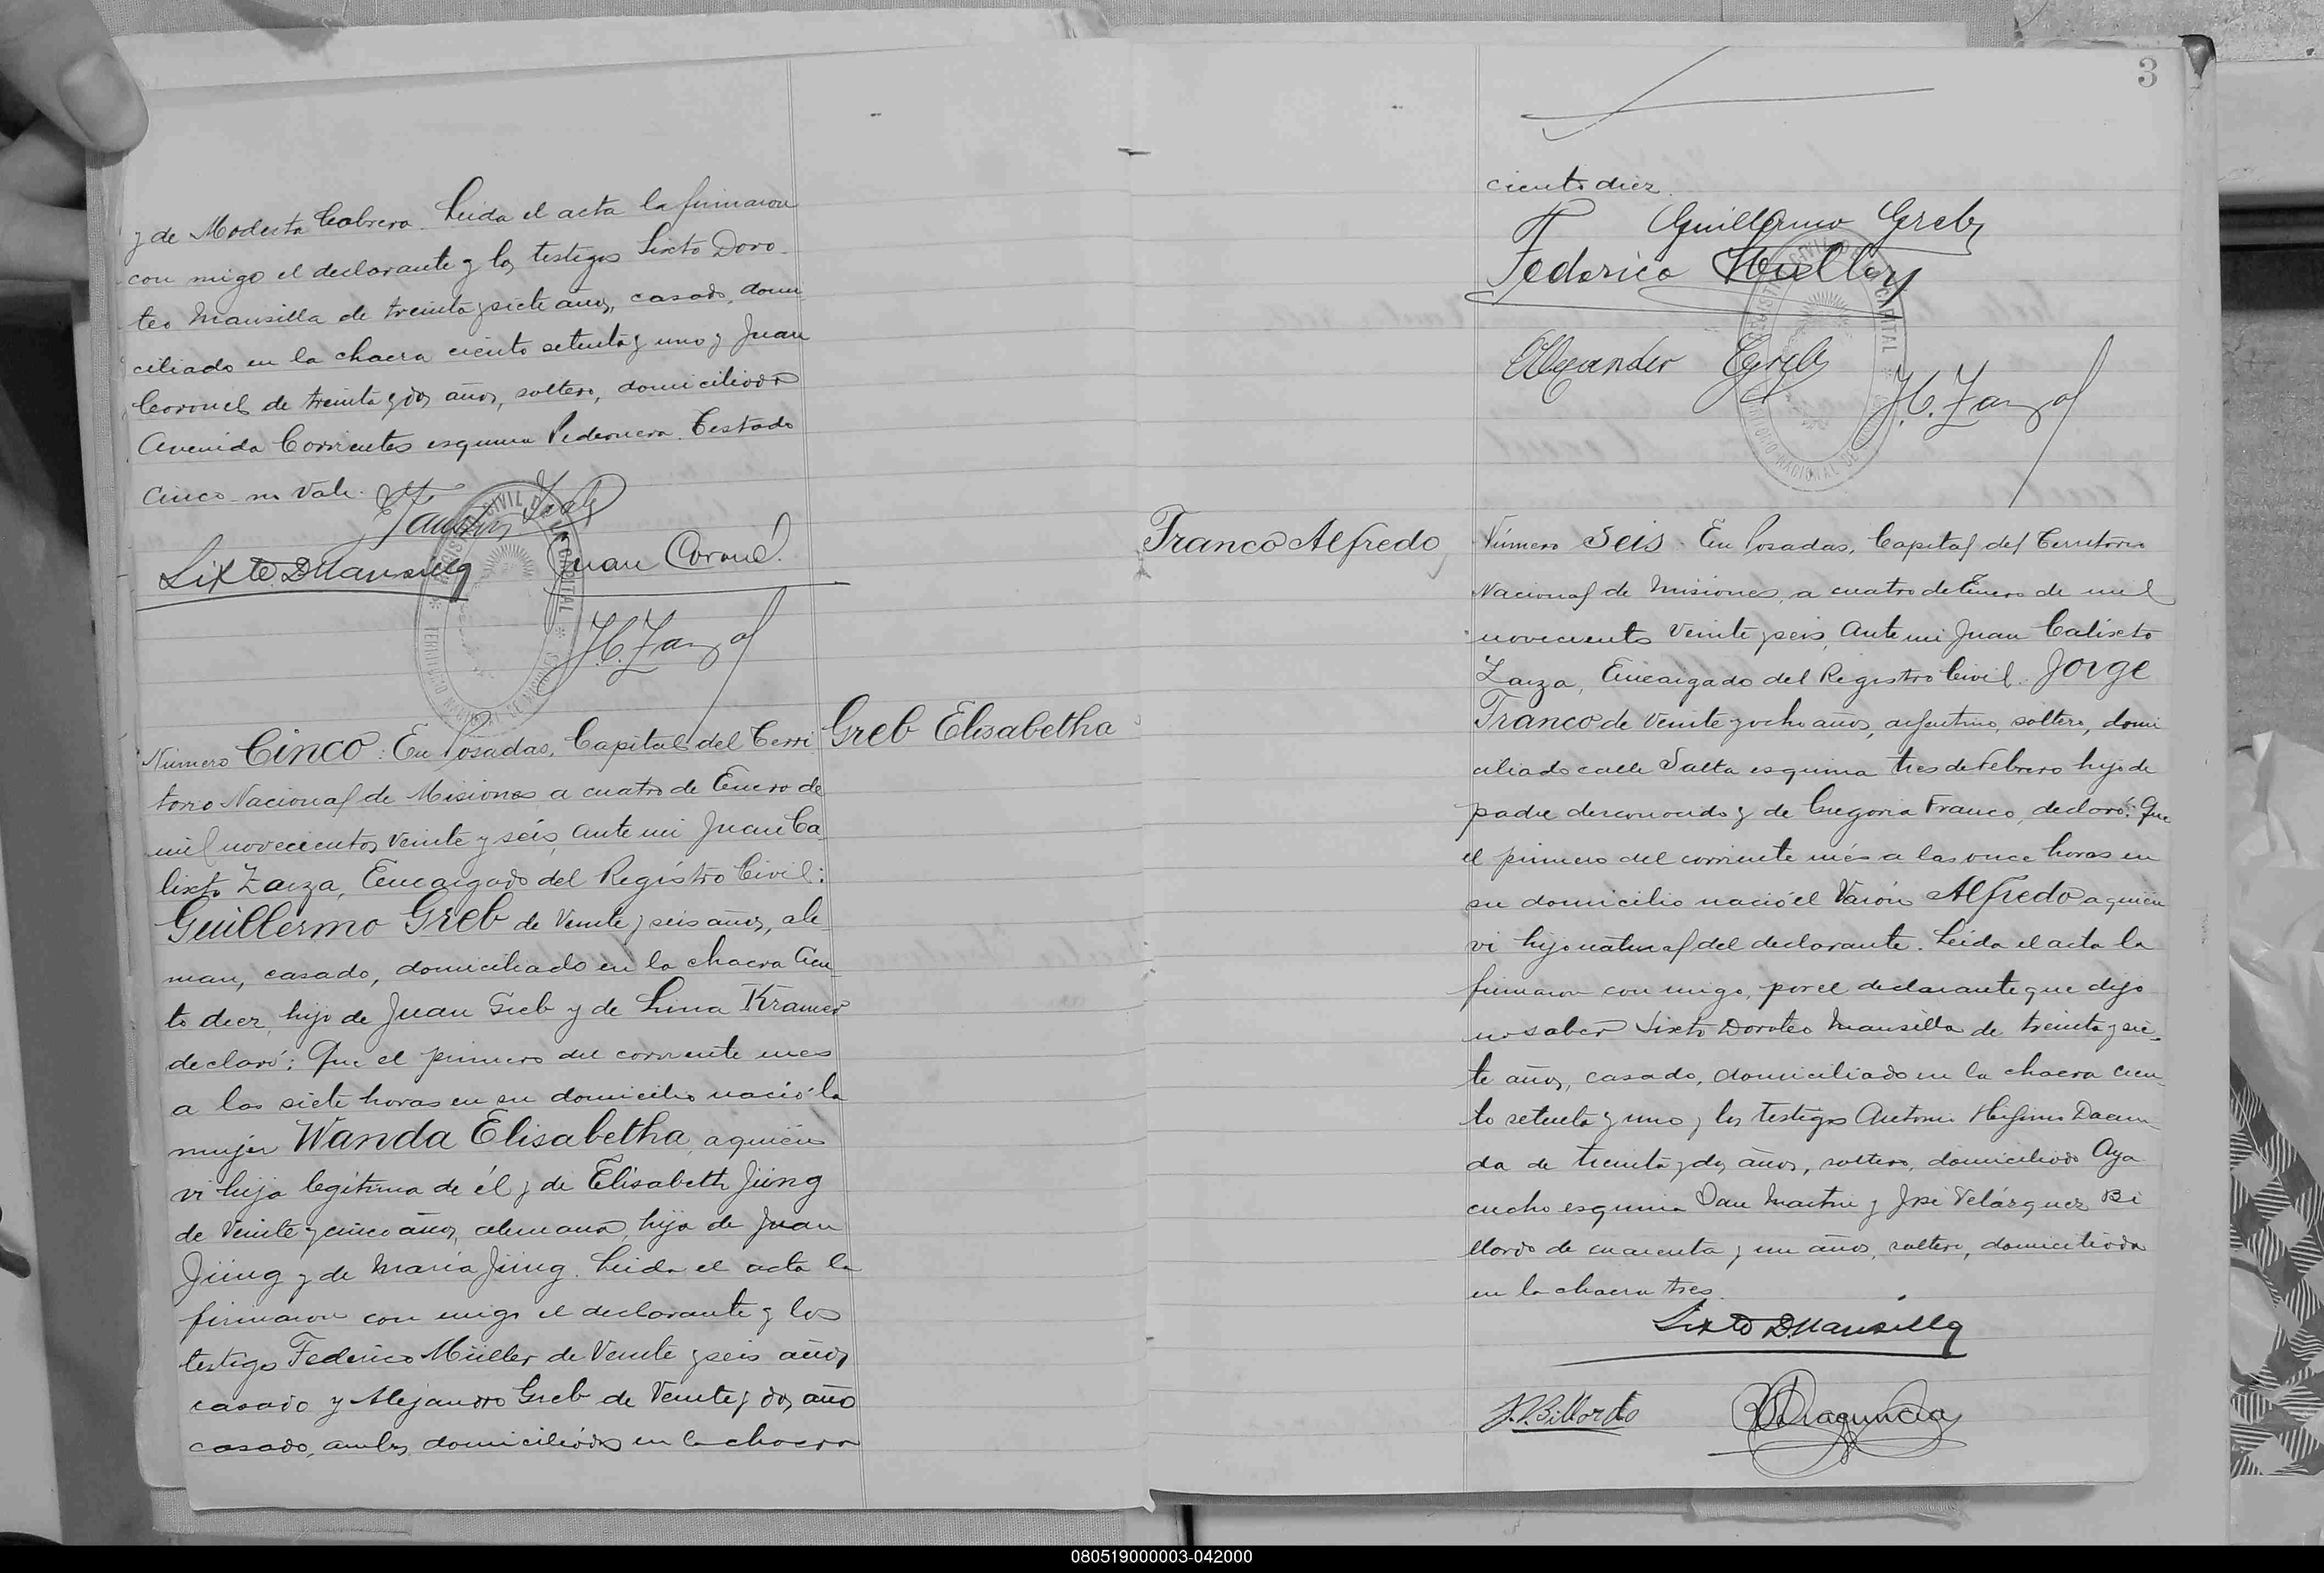 y de Modesta Cabrera. Leida el acta la firmaron
con migo el declarante y los testigos Sixto Doro-
teo Mansilla de treinta y siete años, casado, domi
ciliado en la chacra ciento setenta y uno y Juan
Coronel de treinta y dos años, soltero, domiciliado
Avenida Corrientes esquina Pedernera. Testado
cinco no vale.
Sixto D Mansilla
Juan Coronel
Número Cinco: En Posadas, Capital del Terri
torio Nacional de Misiones a cuatro de Enero de
mil novecientos veinte y seis, ante mi Juan Ca
lixto Zarza, Encargado del Registro Civil:
Guillermo Greb de veinte y seis años, ale
man, casado, domiciliado en la chacra cien
to diez, hijo de Juan Greb y de Lina Kramer
declaró: Que el primero del corriente mes
a las siete horas en su domicilio nació la
mujer Wanda Elisabetha, a quien
vi hija legítima de él y de Elisabeth Jüng
de veinte y cinco años, alemana, hija de Juan
Jüng y de María Jüng. Leida el acta la
firmaron con migo el declarante y los
testigos Federico Müller de veinte y seis años
casado y Alejandro Greb de veinte y dos año
casado, ambos domiciliados en la chacra
Greb Elisabetha
3
ciento diez.
Guillermo Greb
Federico Müller
Alexander Greb
J.C. Zarza
REGISTRO CIVIL DE LA CAPITAL
TERRITORIO NACIONAL DE MISIONES
Franco Alfredo
Número Seis. En Posadas, Capital del Territorio
Nacional de Misiones, a cuatro de Enero de mil
novecientos veinte y seis, ante mi Juan Calixto
Zarza, Encargado del Registro Civil: Jorge
Franco de veinte y ocho años, argentino, soltero, domi
ciliado calle Salta esquina tres de Febrero hijo de
padre desconocido y de Gregoria Franco, declaró: Que
el primero del corriente més a las once horas en
su domicilio nació el varón Alfredo a quien
vi hijo natural del declarante. Leida el acta la
firmaron con migo, por el declarante que dijo
no saber Sixto Doroteo Mansilla de treinta y sie-
te años, casado, domiciliado en la chacra cien
to setenta y uno y los testigos Antonio Higinio
da de treinta y dos años, soltero, domiciliado Aya
cucho esquina San Martin y José Velázquez Bi
llordo de cuarenta y un años, soltero, domiciliado
en la chacra tres.
Sixto D. Mansilla
J.V. Billordo
080519000003-042000